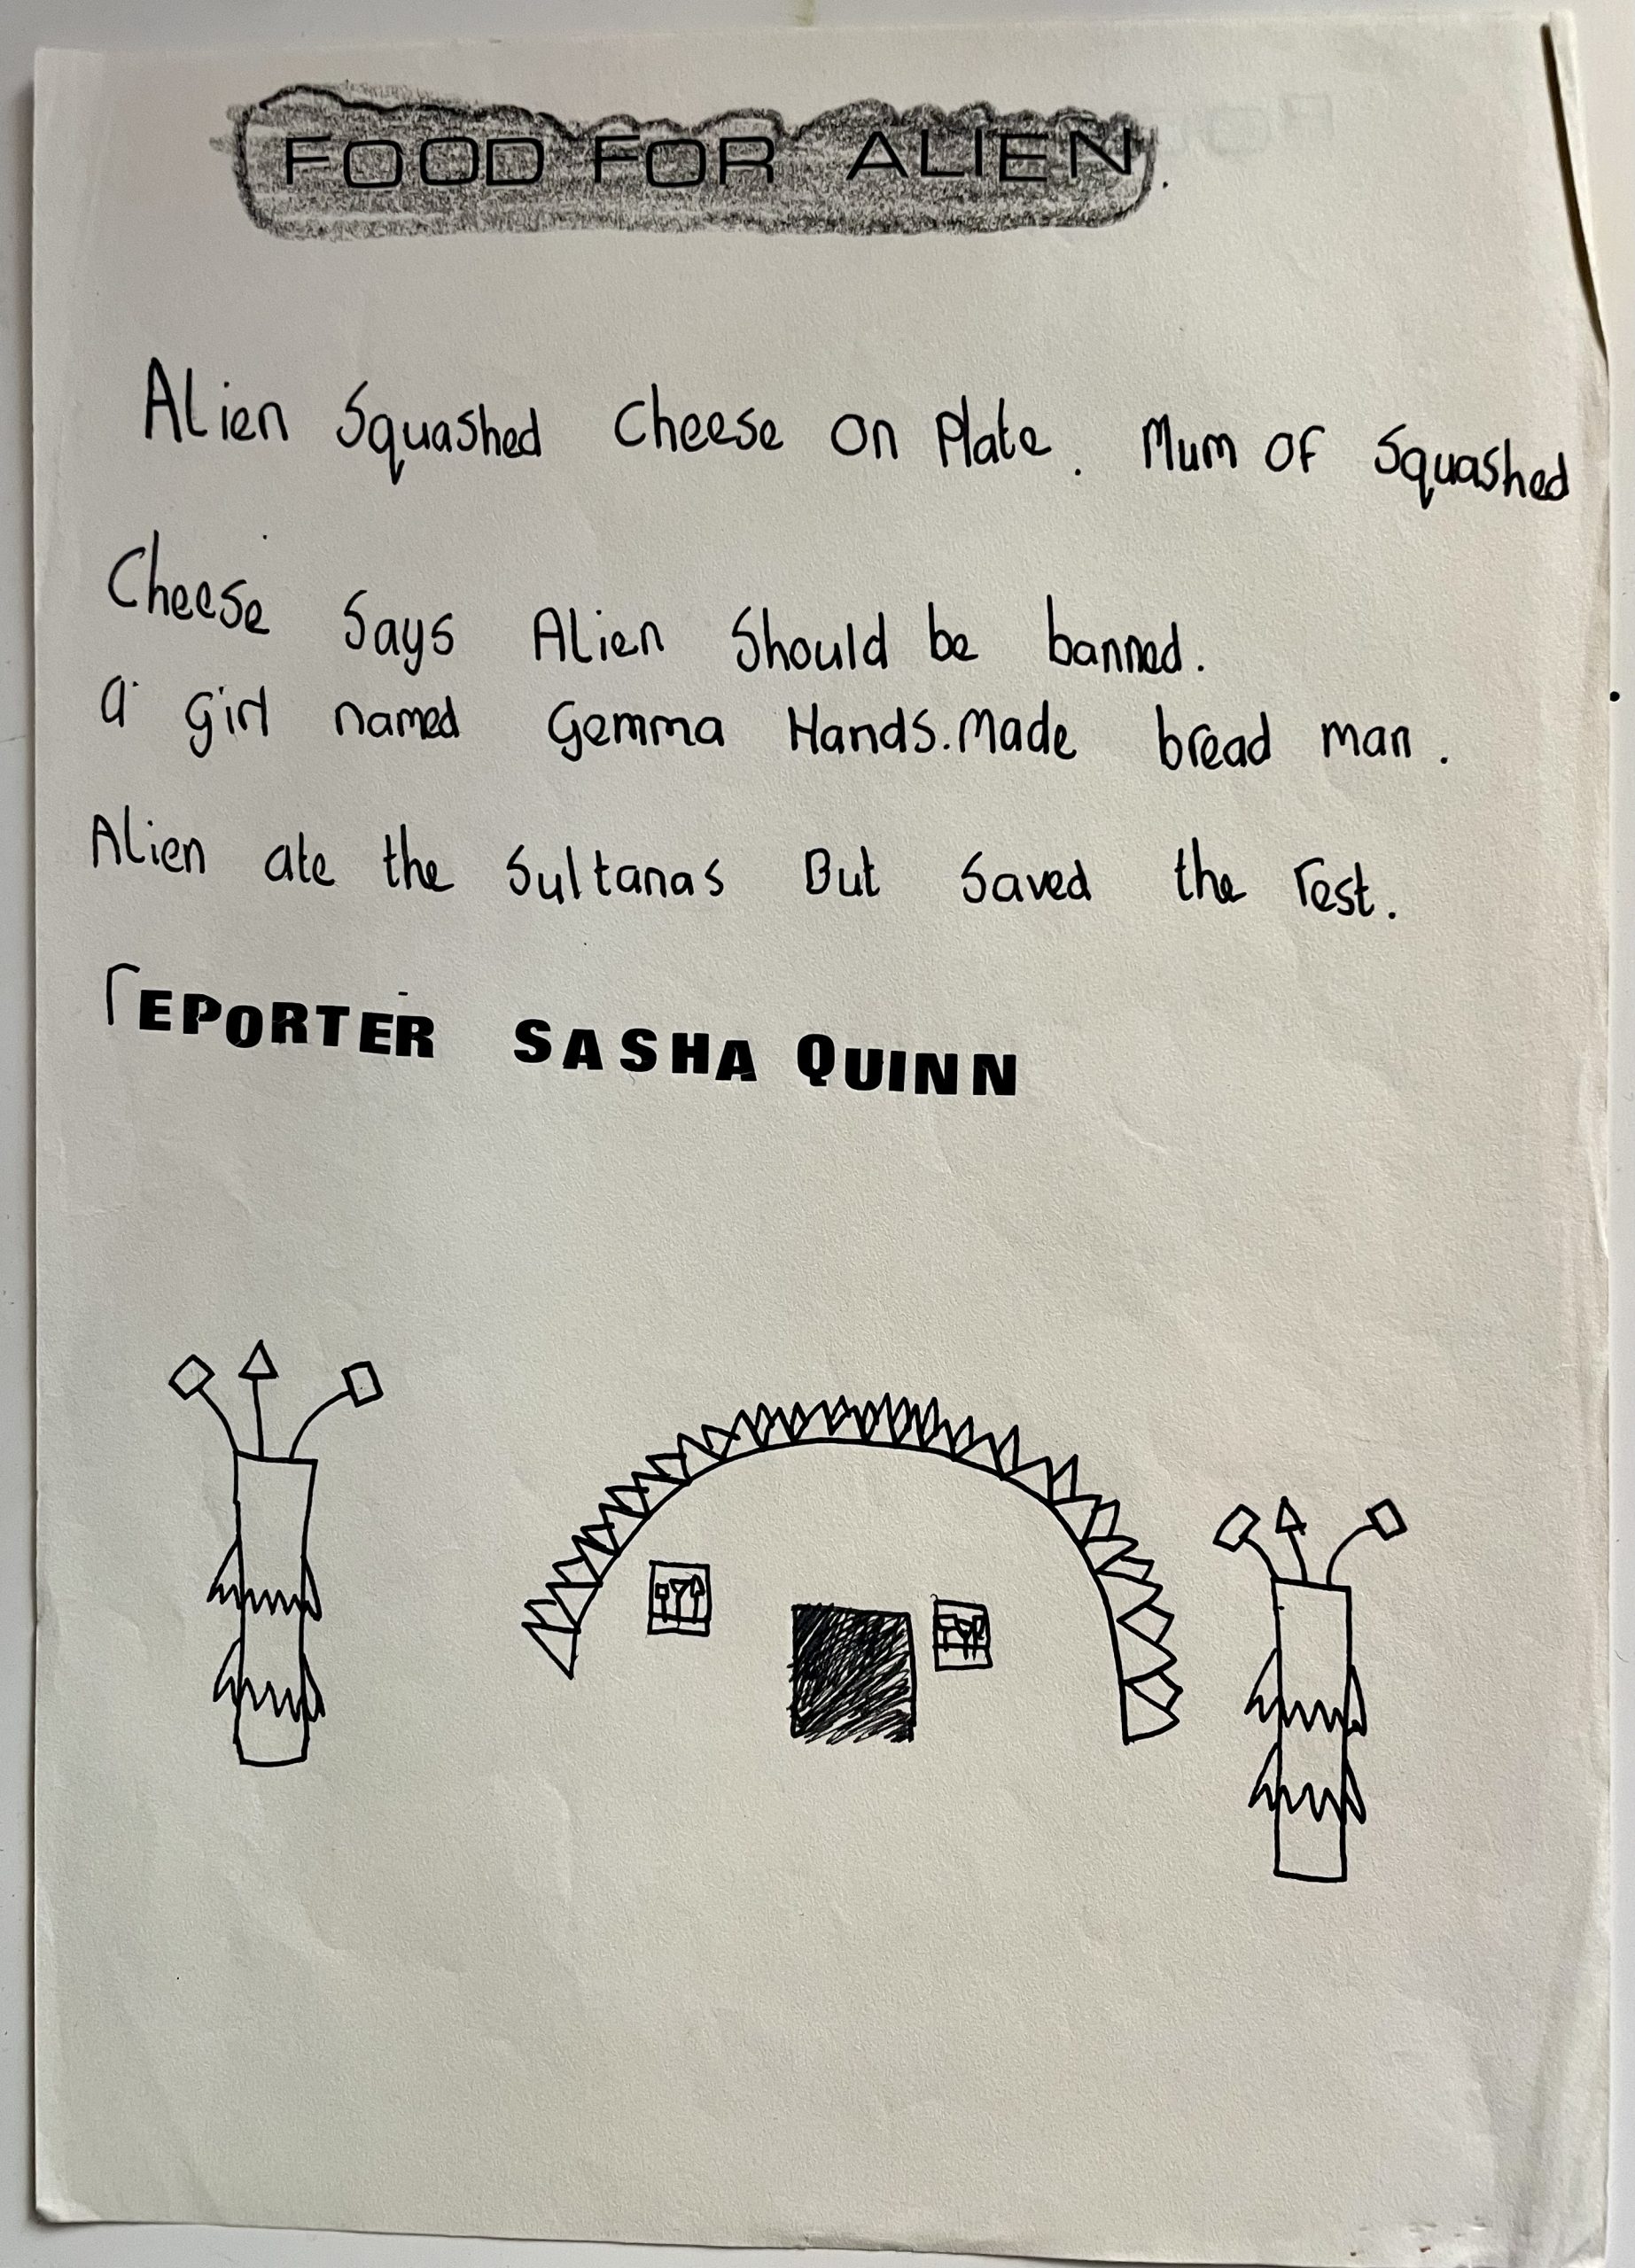 FOOD FOR ALIEN.
Alien Squashed Cheese on Plate. Mum OF Squashed
Cheese Says Alien Should be banned.
a girl named Gemma Hands. Made bread man.
Alien ate the Sultanas But Saved the rest.
rEPORTER SASHA QUINN